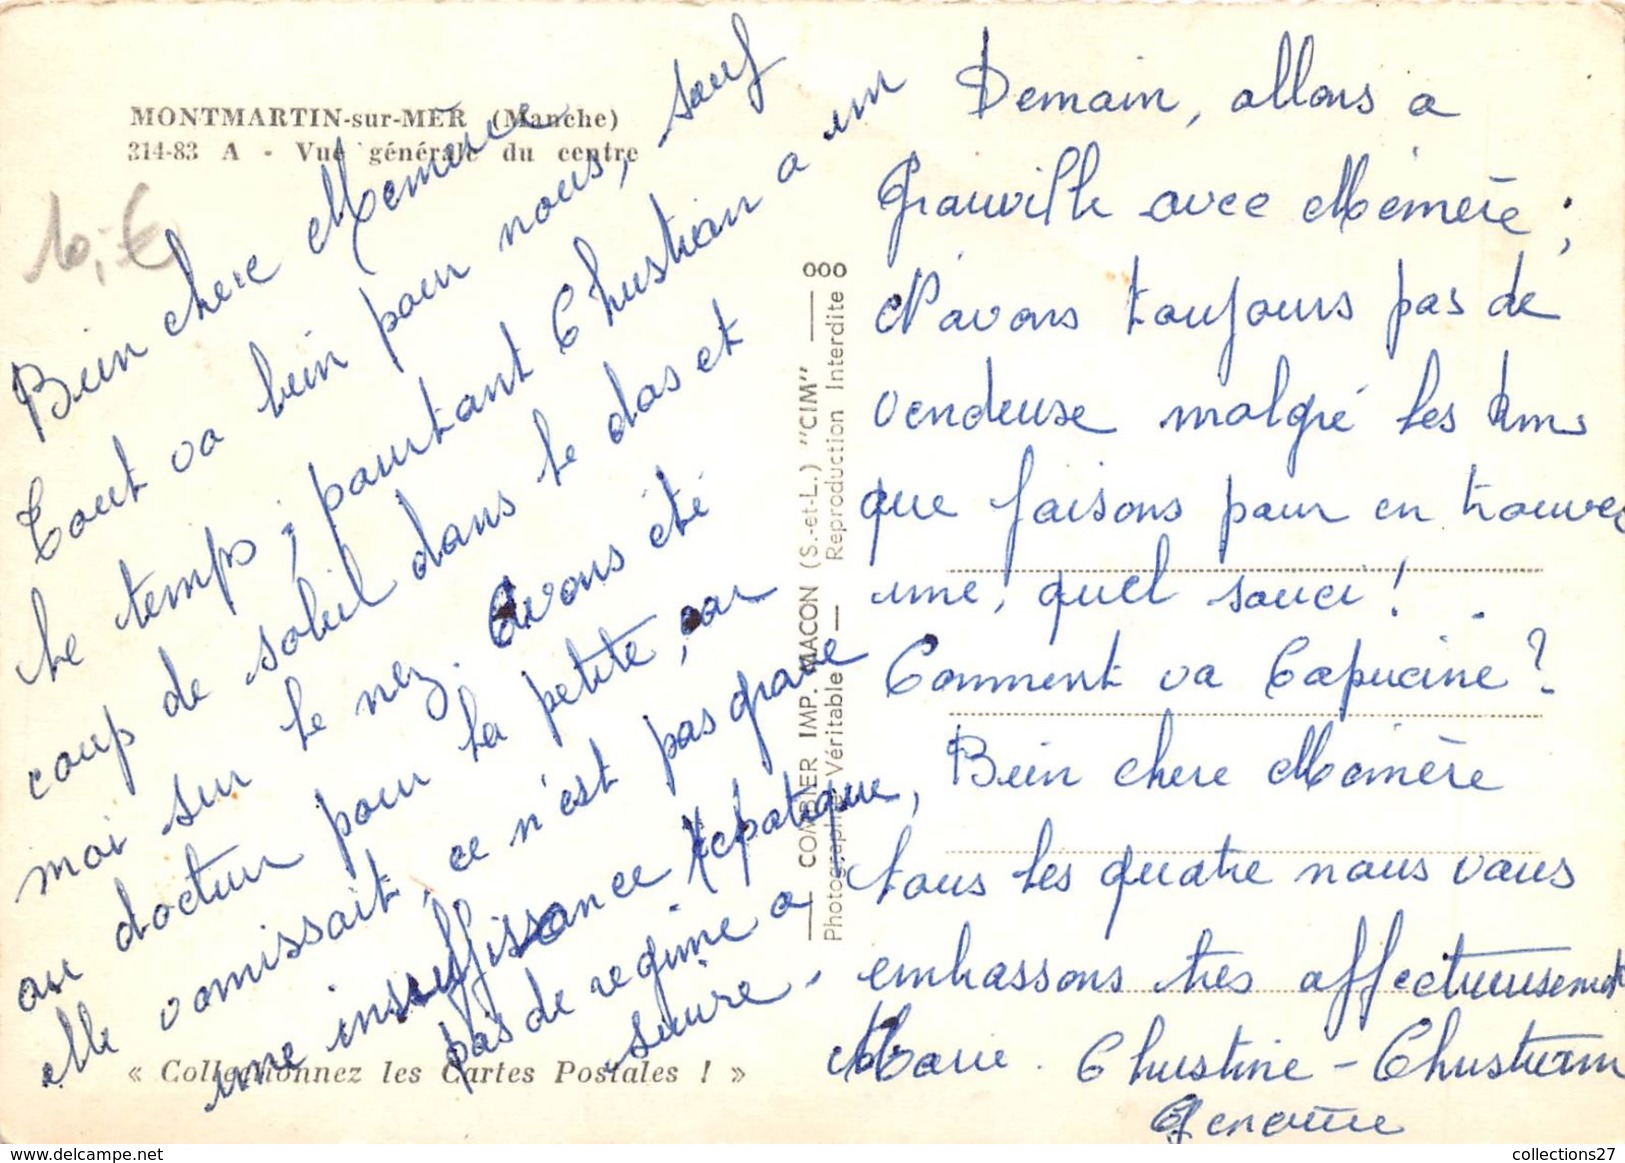 MONTMARTIN-sur-MER (Manche)
314-83 A - Vue générale du centre
10,-€
Bien chere Mémère
Tout va bien pour nous, sauf
le temps ; pourtant Christian a un
coup de soleil dans le dos et
moi sur le nez. Avons été
au docteur pour la petite, car
elle vomissait, ce n'est pas grave
une insuffisance hépatique,
pas de régime à
suivre.
« Collectionnez les Cartes Postales ! »
COMBIER IMP. MACON (S.-et-L.) "CIM" 000
Photographie Véritable — Reproduction Interdite
Demain, allons a
Granville avec Mémère ;
N'avons toujours pas de
vendeuse malgré les
que faisons pour en trouver
une, quel souci !
Comment va Capucine ?
Bien chere Mémère
tous les quatre nous vous
embrassons très affectueusement
Marie. Christine - Christian
collections27